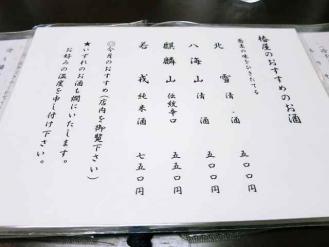 椿屋のおすすめのお酒
蕎麦の味をひきたてる
北雪 清酒 五〇〇円
八海山 清酒 五〇〇円
麒麟山 伝紋辛口 五五〇円
若戎 純米酒 七五〇円
◎今月のおすすめ(店内を御覧下さい)
★いずれのお酒も燗にいたします。
お好みの温度を申し付け下さい。